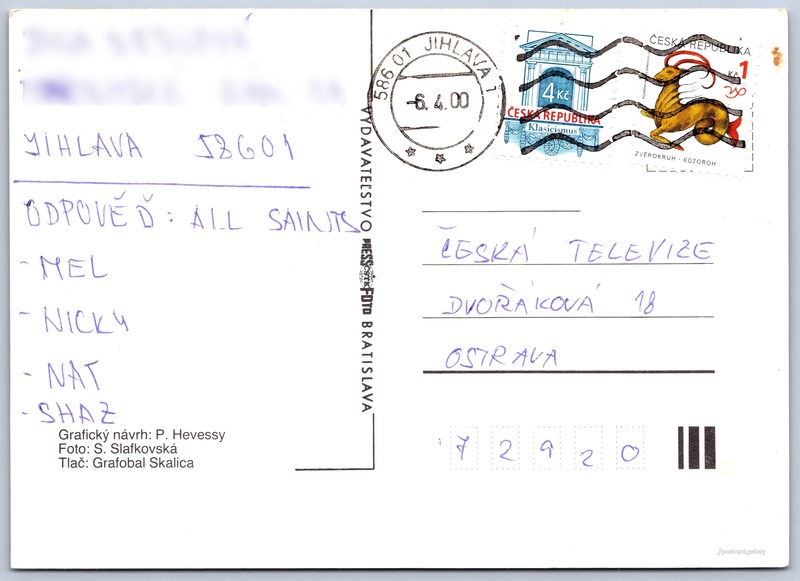 JIHLAVA 58601
ODPOVĚĎ: ALL SAINTS
- MEL
- NICKY
- NAT
- SHAZ
Grafický návrh: P. Hevessy
Foto: S. Slafkovská
Tlač: Grafobal Skalica
VYDAVATEĽSTVO PRESSFOTO BRATISLAVA
586 01 JIHLAVA 1
-6.4.00
4 Kč
ČESKÁ REPUBLIKA
Klasicismus
ČESKÁ REPUBLIKA
Kč 1
ZVĚROKRUH · KOZOROH
ČESKÁ TELEVIZE
DVOŘÁKOVÁ 18
OSTRAVA
72920